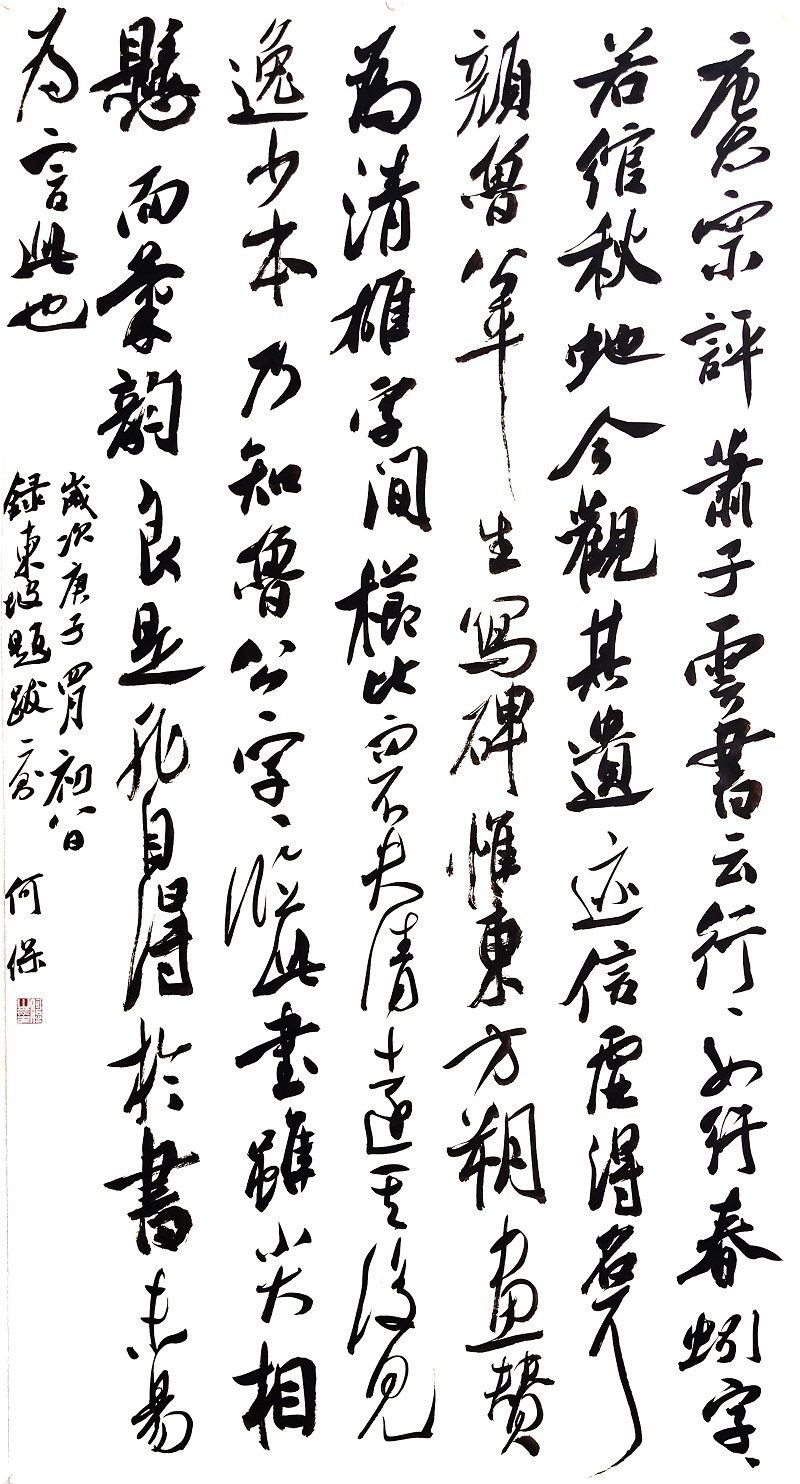 唐太宗評蕭子雲書云行〻如紆春蚓字〻
若綰秋蛇今觀其遺迹信虛得名耳
顏魯公平生寫碑惟東方朔畫贊
為清雄字間櫛比而不失清遠其後見
逸少本乃知魯公字〻臨此書雖小大相
懸而氣韻良是非自得於書未易
為言此也
歲次庚子四月初八日
錄東坡題跋二則
何保